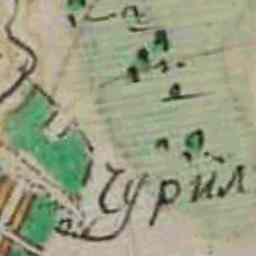 Чурил